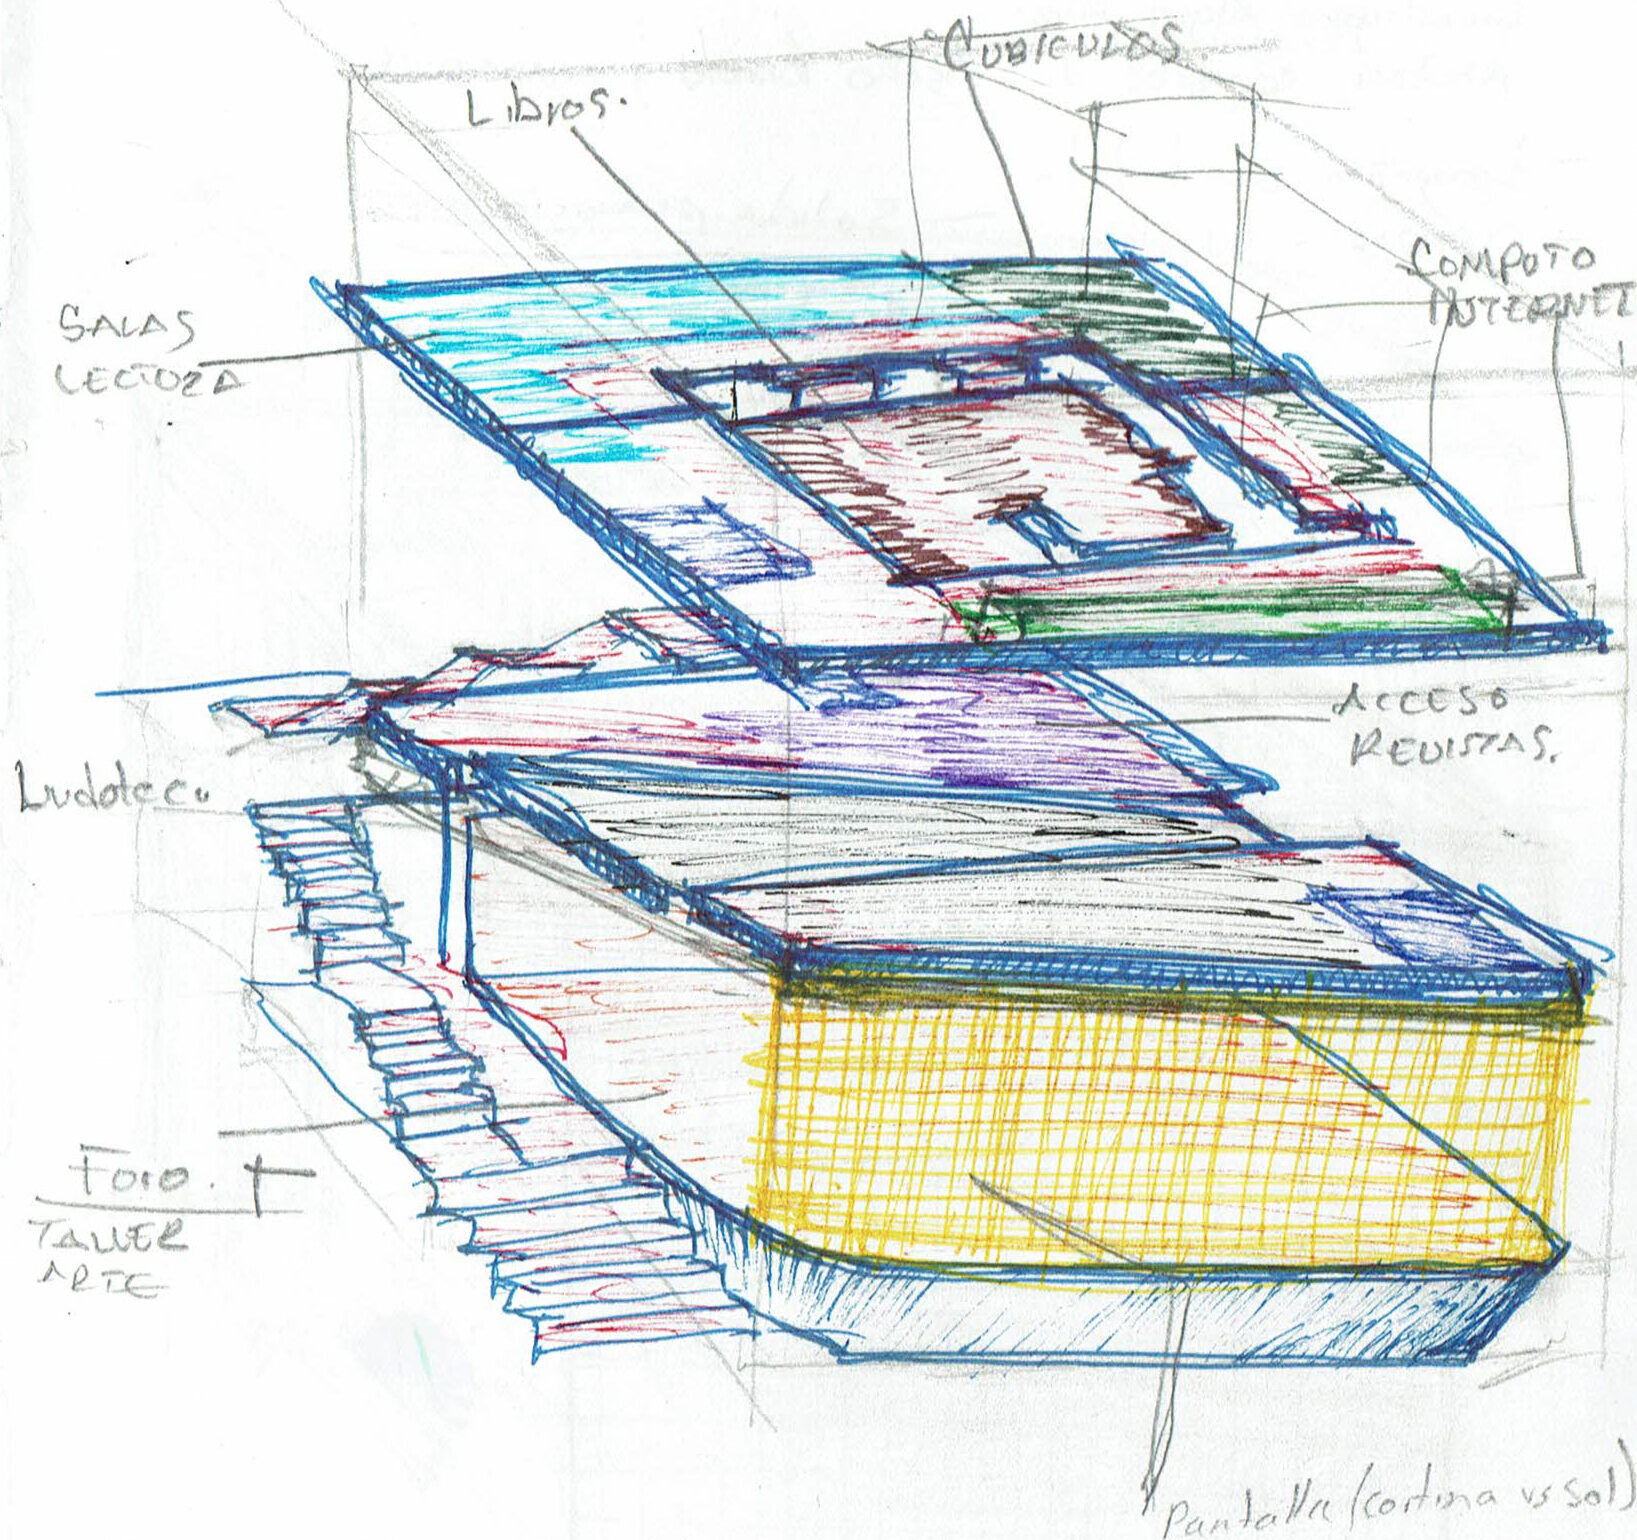 Cubículos.
Libros.
COMPUTO
INTERNET
SALAS
LECTURA
ACCESO
REVISTAS.
Ludoteca
Foro.
TALLER
ARTE
Pantalla (cortina vs sol)